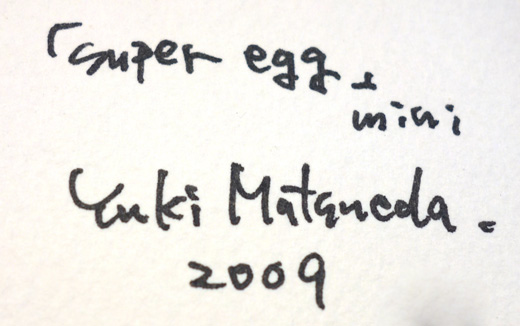 「super egg」
mini
Yuki Matsueda.
2009